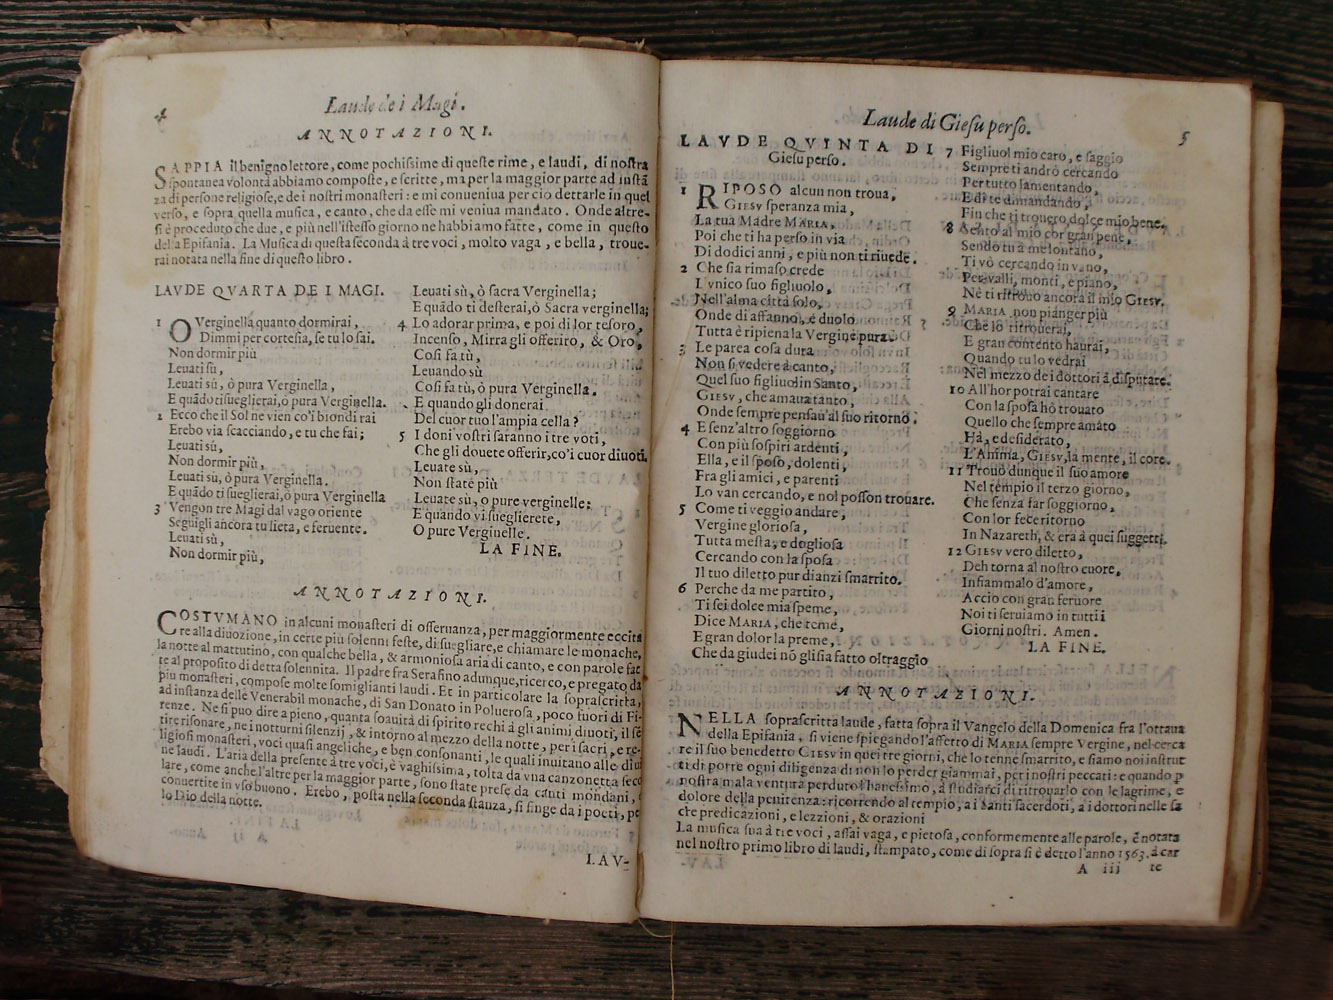 4
Laude de i Magi.
ANNOTAZIONI.
SAPPIA il benigno lettore, come pochissime di queste rime, e laudi, di nostra
spontanea volontà abbiamo composte, e scritte, ma per la maggior parte ad instã
za di persone religiose, e de i nostri monasteri: e mi conueniua per cio dettarle in quel
verso, e sopra quella musica, e canto, che da esse mi veniua mandato. Onde altre-
si è proceduto che due, e più nell'istesso giorno ne habbiamo fatte, come in questo
della Epifania. La Musica di questa seconda à tre voci, molto vaga, e bella, troue-
rai notata nella fine di questo libro.
LAVDE QVARTA DE I MAGI.
1 O Verginella quanto dormirai,
Dimmi per cortesia, se tu lo sai.
Non dormir più
Leuati su,
Leuati sù, ò pura Verginella,
E quãdo ti sueglierai, ò pura Verginella.
2 Ecco che il Sol ne vien co'i biondi rai
Erebo via scacciando, e tu che fai;
Leuati sù,
Non dormir più,
Leuati sù, ò pura Verginella.
E quãdo ti sueglierai, ò pura Verginella
3 Vengon tre Magi dal vago oriente
Seguigli ancora tu lieta, e feruente.
Leuati sù,
Non dormir più,
Leuati sù, ò sacra Verginella;
E quãdo ti desterai, ò Sacra verginella;
4 Lo adorar prima, e poi di lor tesoro,
Incenso, Mirra gli offeriro, & Oro,
Cosi fa tù,
Leuando sù
Cosi fa tù, ò pura Verginella.
E quando gli donerai
Del cuor tuo l'ampia cella?
5 I doni vostri saranno i tre voti,
Che gli douete offerir, co'i cuor diuoti.
Leuate sù,
Non state più
Leuate sù, o pure verginelle:
E quando vi sueglierete,
O pure Verginelle.
LA FINE.
ANNOTAZIONI.
COSTVMANO in alcuni monasteri di osseruanza, per maggiormente eccita
re alla diuozione, in certe più solenni feste, di suegliare, e chiamare le monache,
la notte al mattutino, con qualche bella, & armoniosa aria di canto, e con parole fat
te al proposito di detta solennita. Il padre fra Serafino adunque, ricerco, e pregato da
più monasteri, compose molte somiglianti laudi. Et in particolare la soprascritta,
ad instanza delle Venerabil monache, di San Donato in Poluerosa, poco fuori di Fi-
renze. Ne si puo dire a pieno, quanta soauità di spirito rechi à gli animi diuoti, il sé
tire risonare, ne i notturni silenzij, & intorno al mezzo della notte, per i sacri, e re-
ligiosi monasteri, voci quasi angeliche, e ben consonanti, le quali inuitano alle diui
ne laudi. L'aria della presente à tre voci, è vaghissima, tolta da vna canzonetta seco
lare, come anche l'altre per la maggior parte, sono state prese da cãti mondani,
conuertite in vso buono. Erebo, posta nella seconda stanza, si finge da i poeti, pe
lo Dio della notte.
LAV-
Laude di Giesu perso.
5
LAVDE QVINTA DI
Giesu perso.
1 RIPOSO alcun non troua,
GIESV speranza mia,
La tua Madre MARIA,
Poi che ti ha perso in via
Di dodici anni, e più non ti riuede.
2 Che sia rimaso crede
L'vnico suo figliuolo,
Nell'alma città solo,
Onde di affanno, e duolo
Tutta è ripiena la Vergine pura.
3 Le parea cosa dura
Non si vedere à canto,
Quel suo figliuol in Santo,
GIESV, che amaua tanto,
Onde sempre pensau'al suo ritorno.
4 E senz'altro soggiorno
Con più sospiri ardenti,
Ella, e il sposo, dolenti,
Fra gli amici, e parenti
Lo van cercando, e nol posson trouare.
5 Come ti veggio andare,
Vergine gloriosa,
Tutta mesta, e dogliosa
Cercando con la sposa
Il tuo diletto pur dianzi smarrito.
6 Perche da me partito,
Ti sei dolce mia speme,
Dice MARIA, che teme,
E gran dolor la preme,
Che da giudei nõ gli sia fatto oltraggio
7 Figliuol mio caro, e saggio
Sempre ti andrò cercando
Per tutto lamentando,
E di te dimandando,
Fin che ti trouero dolce mio bene.
8 Sento al mio cor gran pene,
Sendo tu a me lontano,
Ti vò cercando in vano,
Per valli, monti, e piano,
Ne ti ritrouo ancora il mio GIESV.
9 MARIA non pianger più
Che lo ritrouerai,
E gran contento haurai,
Quando tu lo vedrai
Nel mezzo de i dottori à disputare.
10 All'hor potrai cantare
Con la sposa hò trouato
Quello che sempre amato
Hà, e desiderato,
L'Anima, GIESV, la mente, il core.
11 Trouò dunque il suo amore
Nel tempio il terzo giorno,
Che senza far soggiorno,
Con lor fece ritorno
In Nazareth, & era à quei suggetti.
12 GIESV vero diletto,
Deh torna al nostro cuore,
Infiammalo d'amore,
Accio con gran feruore
Noi ti seruiamo in tutti i
Giorni nostri. Amen.
LA FINE.
ANNOTAZIONI.
NELLA soprascritta laude, fatta sopra il Vangelo della Domenica fra l'ottaua
della Epifania, si viene spiegando l'affetto di MARIA sempre Vergine, nel cerca
re il suo benedetto GIESV in quei tre giorni, che lo tenne smarrito, e siamo noi instrut
ti di porre ogni diligenza di non lo perder giammai, per i nostri peccati: e quando p
nostra mala ventura perduto l'hauessimo, à studiarci di ritrouarlo con le lagrime, e
dolore della penitenza: ricorrendo al tempio, a i santi sacerdoti, a i dottori nelle sa
cre predicazioni, e lezzioni, & orazioni
La musica sua à tre voci, assai vaga, e pietosa, conformemente alle parole, è notata
nel nostro primo libro di laudi, stampato, come di sopra si è detto l'anno 1563. à car
A iij te